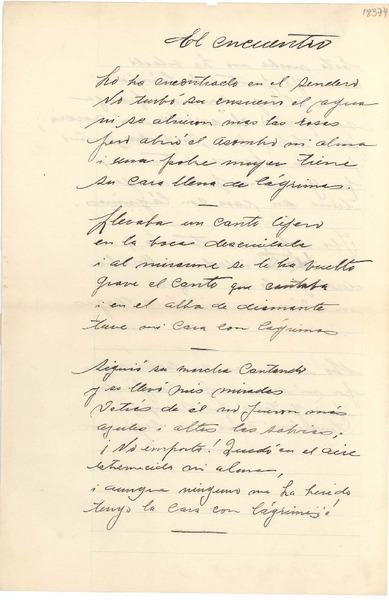 18374
El encuentro
Lo he encontrado en el sendero
No turbó su ensueño el agua
ni se abrieron mas las rosas
pero abrió el asombro mi alma
i una pobre mujer tiene
su cara llena de lágrimas.
Llevaba un canto lijero
en la boca descuidada
i al mirarme se le ha vuelto
grave el canto que cantaba
i en el alba de diamante
tuve mi cara con lágrimas
Siguió su marcha cantando
y se llevó mis miradas
Detrás de él no fueron más
azules i altas las salvias;
¡No importa! Quedó en el aire
estremecida mi alma,
i aunque ninguno me ha herido
tengo la cara con lágrimas!